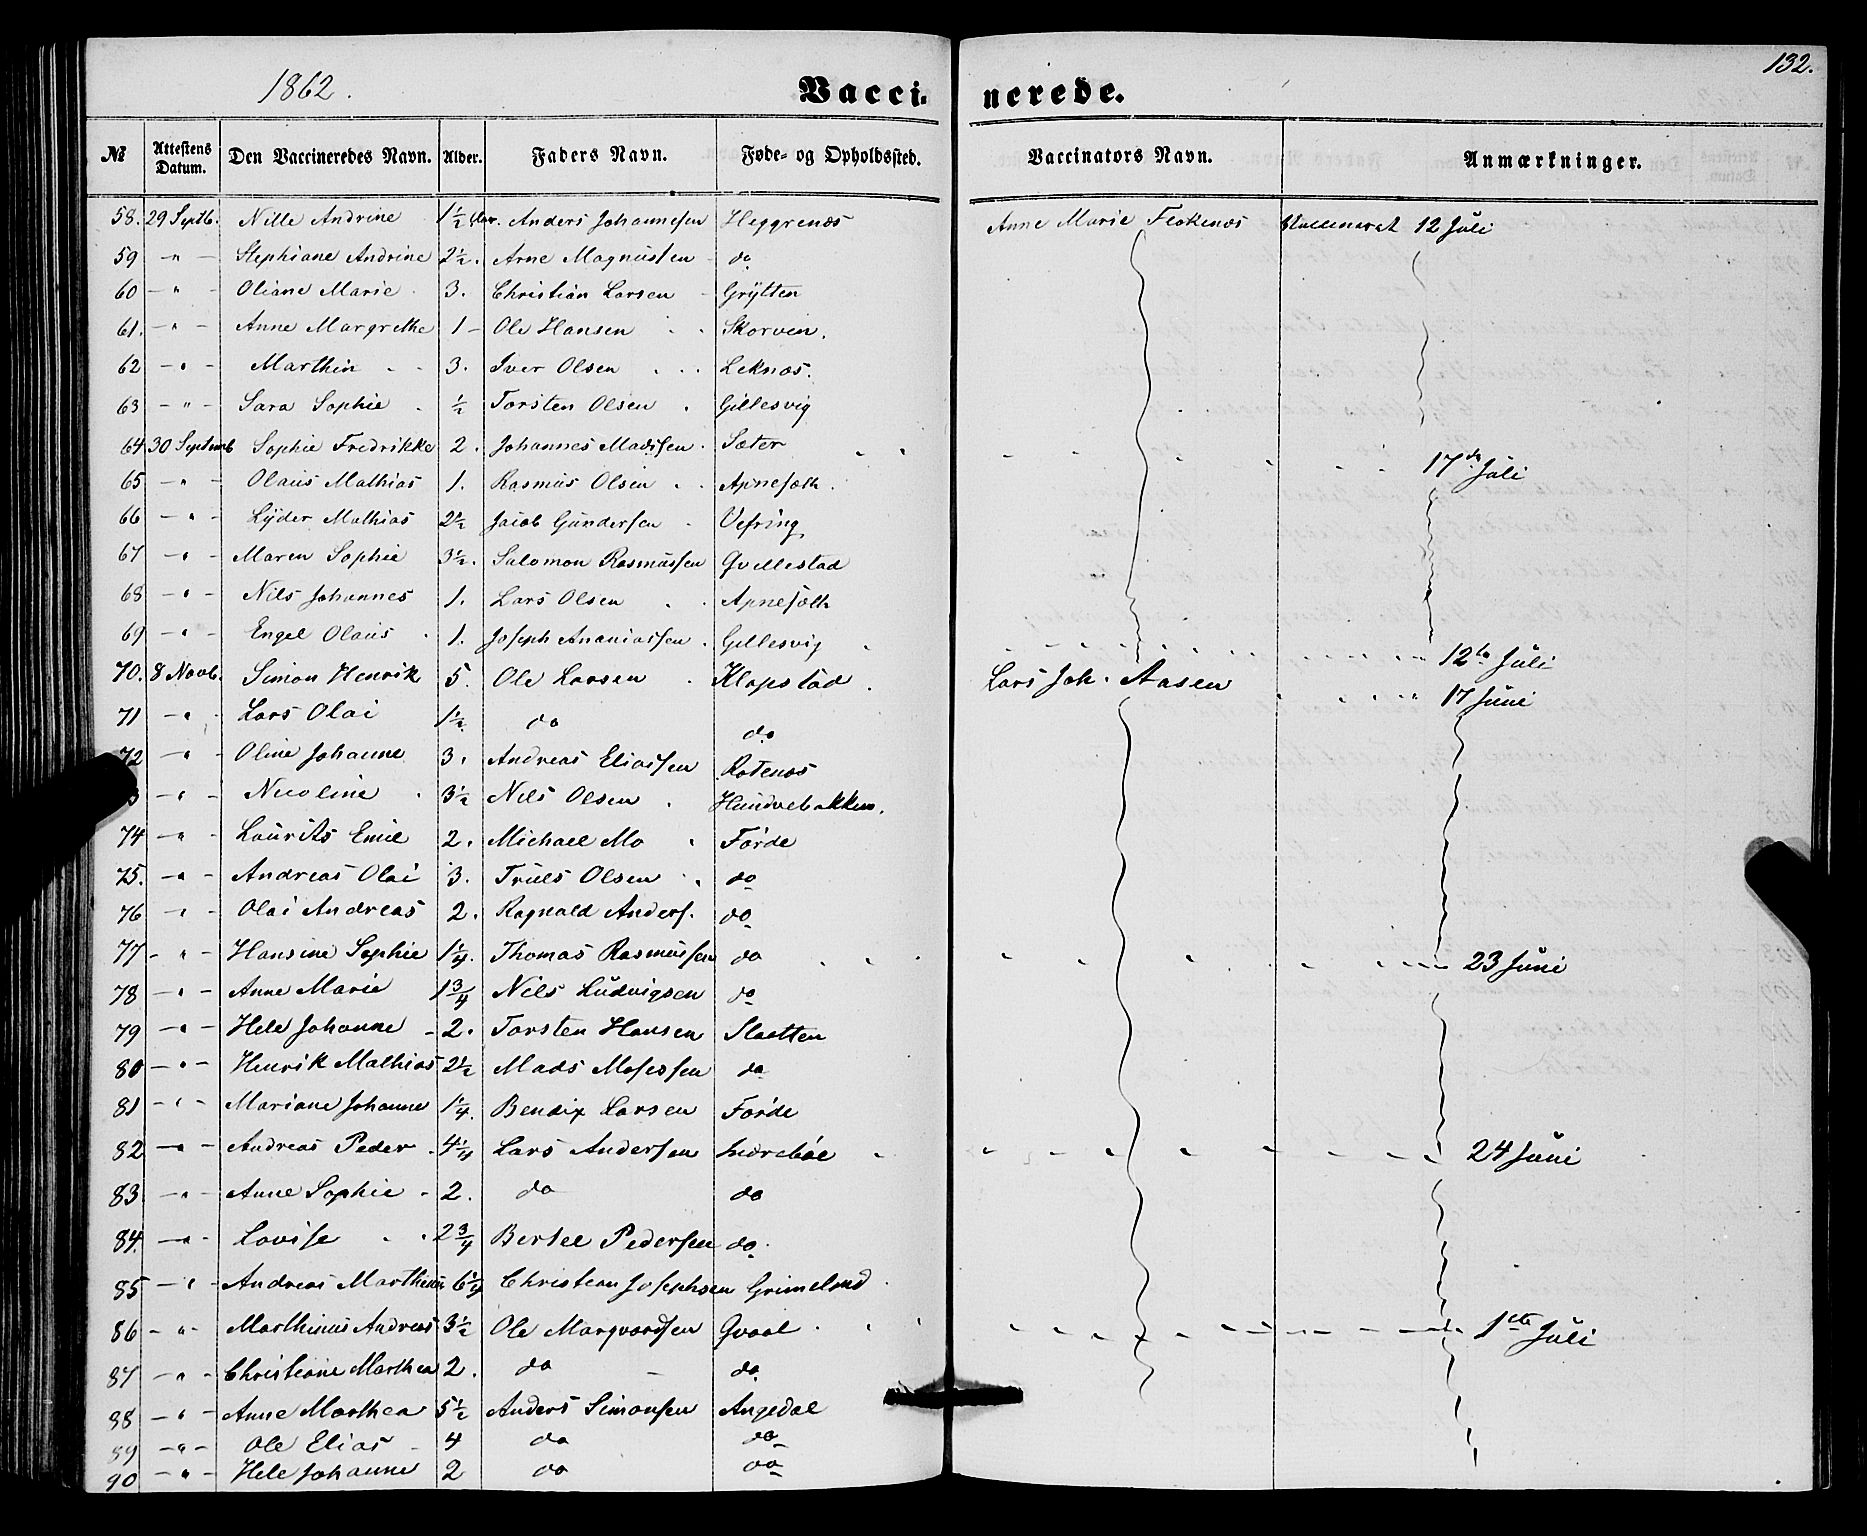 1862.
Vacci- nerede.
132.
№ Attestens Datum. Den Vaccineredes Navn. Alder. Faders Navn. Føde- og Opholdssted. Vaccinators Navn. Anmærkninger.
58. 29 Septb. Nille Andrine 1½ Aar. Anders Johannesen Heggrenæs Anne Marie Flokenæs Vaccineret 12 Juli
59 - " - Stephiane Andrine 2½. Arne Magnussen do
60 - " - Oliane Marie 3. Christian Larsen Grytten
61. - " - Anne Margrethe 1 - Ole Hansen Skorven.
62 - " - Marthin 3. Iver Olsen Leknæs.
63 - " - Sara Sophie ½ Torsten Olsen Gillesvig
64 30 Septemb Sophie Fredrikke 2. Johannes Madssen Sæter 17de Juli
65 - " - Olaus Mathias 1. Rasmus Olsen Apneseth.
66 - " - Lyder Mathias 2½ Jacob Gundersen Vefring
67 - " - Maren Sophie 3½. Salomon Rasmussen Gvellestad
68 - " - Nils Johannes 1. Lars Olsen Apneseth
69 - " - Engel Olaus 1. Joseph Ananiassen Gillesvig 12te Juli
70. 8 Novb. Simon Henrik 5. Ole Larsen Klopstad Lars Joh. Aasen 17 Juni
71 - " - Lars Olai 1½ do do
72 - " - Oline Johanne 3. Andreas Eliassen Rotenæs
3 - " - Nicoline 3½ Nils Olsen Hundvebakken.
74 - " - Laurits Emil 2. Michael Mo Førde
75. - " - Andreas Olai 3. Truls Olsen do
76 - " - Olai Andreas 2. Ragnald Anders. do
77 - " - Hansine Sophie 1¼. Thomas Rasmussen do 23 Juni
78 - " - Anne Marie 1¾ Nils Ludvigsen do
79 - " - Hele Johanne 2. Torsten Hansen Slaatten
80 - " - Henrik Mathias 2½ Mads Mosessen do
81 - " - Mariane Johanne 1¼. Bendix Larsen Førde
82 - " - Andreas Peder 4¼ Lars Andersen 24 Juni
83 - " - Anne Sophie 2. do do
84. - " - Lovise 2¾ Bertel Pedersen do.
85 - " - Andreas 6½ Christian Josephsen Grimelund
86 - " - Marthinus Andreas 3½ Ole Marqvardsen Qvaal 1ste Juli
87 - " - Christiane Marthea 2. do do
88 - " - Anne Marthea 5½ Anders Simonsen Angedal
89 - " - Ole Elias 4 do do
90 - " - Hele Johanne 2 do do